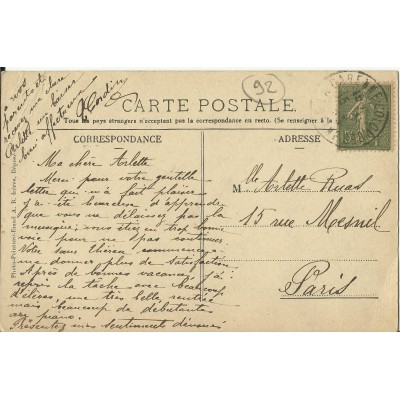 92
CARTE POSTALE
Tous les pays étrangers n'acceptent pas la correspondance au recto. (Se renseigner à la
CORRESPONDANCE
ADRESSE
Ma chère Arlette
Merci pour votre gentille
lettre qui m'a fait plaisir
J'ai été heureuse d'apprendre
que vous ne délaissez pas la
musique; vous étiez en trop bonne
voie pour ne pas continuer
Votre sœur
me donner plus de satisfaction
Après de bonnes vacances j'ai
repris la tâche avec beaucoup
d'élèves, une très belle rentrée
mais beaucoup de débutantes
au piano.
Présentez mes sentiments dévoués
à vos
parents et
recevez une
Arlette un baiser
bien affectueux
Mlle Arlette Ruas
15 rue Mesnil
Paris